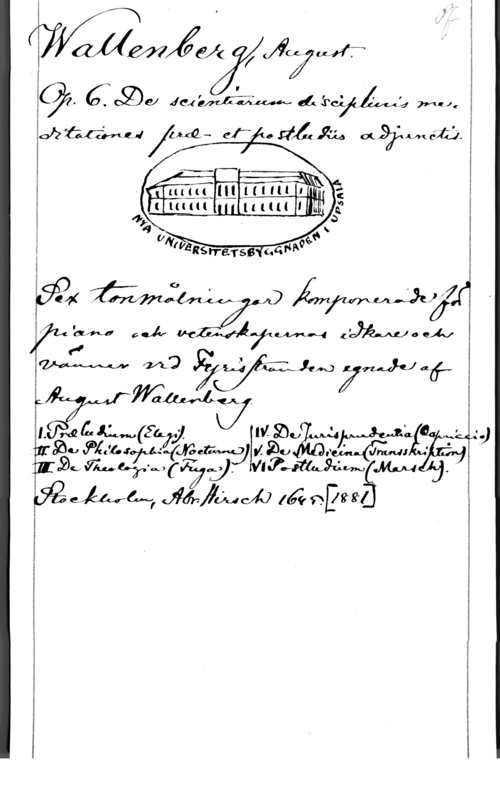 Wallenberg, August.
Op. 6. De scientiarum disciplinis me-
ditationes præ- et postludiis adjunctis.
NYA UNIVERSITETSBYGGNADEN I UPSALA
Sex tonmålningar komponerade för
piano och vetenskapernas idkare och
vänner vid Fyrisstranden egnade af
August Wallenberg
I. Præludium (Elegi).
II. De Philosophia (Nocturne)
III. De Theologia (Fuga).
IV. De Jurisprudentia (Capriccio)
V. De Medicina (Transskription)
VI. Postludium (Marsch).
Stockholm, Abr. Hirsch [1881]